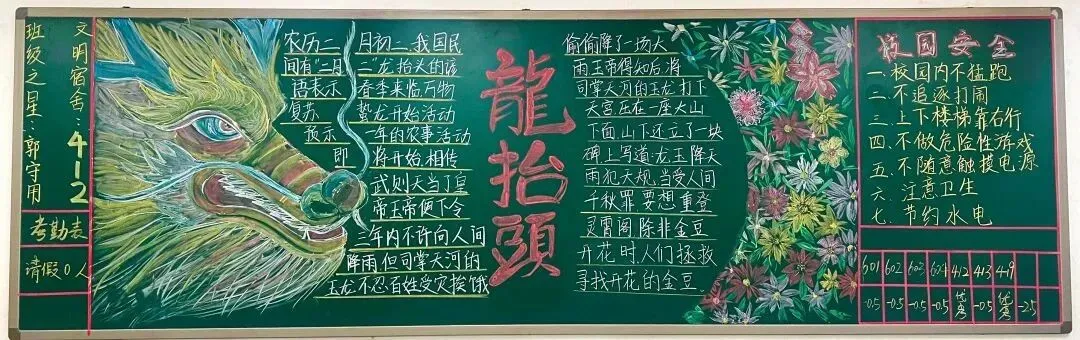 文明宿舍：412
班级之星：郭守用
考勤表
请假0人
农历二月初二，我国民
间有“二月二”龙抬头的谚
语表示春季来临万物
复苏蛰龙开始活动
预示一年的农事活动
即将开始.相传
武则天当了皇
帝玉帝便下令
三年内不许向人间
降雨但司掌天河的
玉龙不忍百姓受灾挨饿
龍抬頭
偷偷降了一场大
雨玉帝得知后,将
司掌天河的玉龙打下
天宫压在一座大山
下面,山下还立了一块
碑上写道:龙玉降天
雨犯大规,当受人间
千秋罪要想重登
灵霄阁,除非金豆
开花时人们拯救
寻找开花的金豆
校园安全
一、校园内不猛跑
二、不追逐打闹
三、上下楼梯靠右行
四、不做危险性游戏
五、不随意触摸电源
六、注意卫生
七、节约水电
601 602 603 604 412 413 419
-0.5 -0.5 -0.5 -0.5 优秀 -0.5 优秀 -2.5